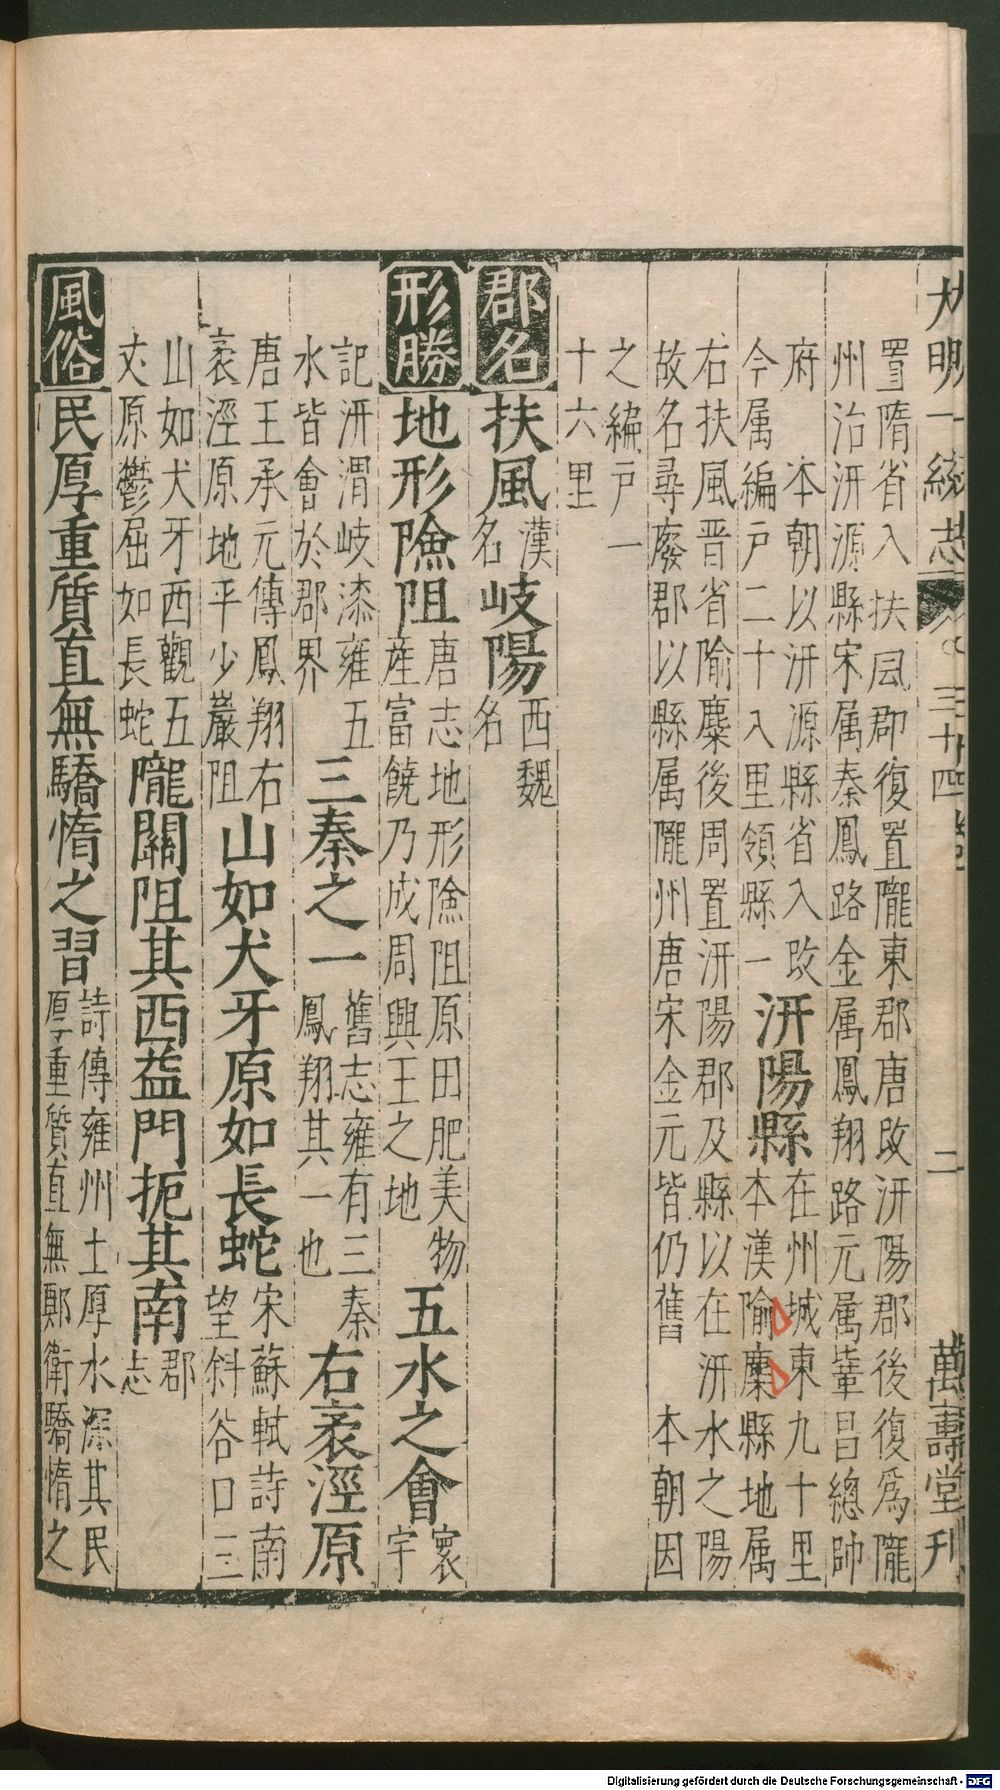 大明一統志 三十四卷 二 萬壽堂刊
置隋省入扶風郡復置隴東郡唐改汧陽郡後復爲隴
州治汧源縣宋属秦鳳路金属鳳翔路元属鞏昌總帥
府 本朝以汧源縣省入改
今属編戶二十入里領縣一
汧陽縣
在州城東九十里
本漢隃麋縣地属
右扶風晋省隃麋後周置汧陽郡及縣以在汧水之陽
故名尋廢郡以縣属隴州唐宋金元皆仍舊 本朝因
之編戶一
十六里
郡名
扶風
漢
名
岐陽
西魏
名
形勝
地形險阻
唐志地形險阻原田肥美物
産富饒乃成周興王之地
五水之會
寰
宇
記汧渭岐漆雍五
水皆會於郡界
三秦之一
舊志雍有三秦
鳳翔其一也
右袤涇原
唐王承元傳鳳翔右
袤涇原地平少巖阻
山如犬牙原如長蛇
宋蘇軾詩南
望斜谷口三
山如犬牙西觀五
丈原鬱屈如長蛇
隴關阻其西益門扼其南
郡
志
風俗
民厚重質直無驕惰之習
詩傳雍州土厚水深其民
厚重質直無鄭衛驕惰之
Digitalisierung gefördert durch die Deutsche Forschungsgemeinschaft - DFG